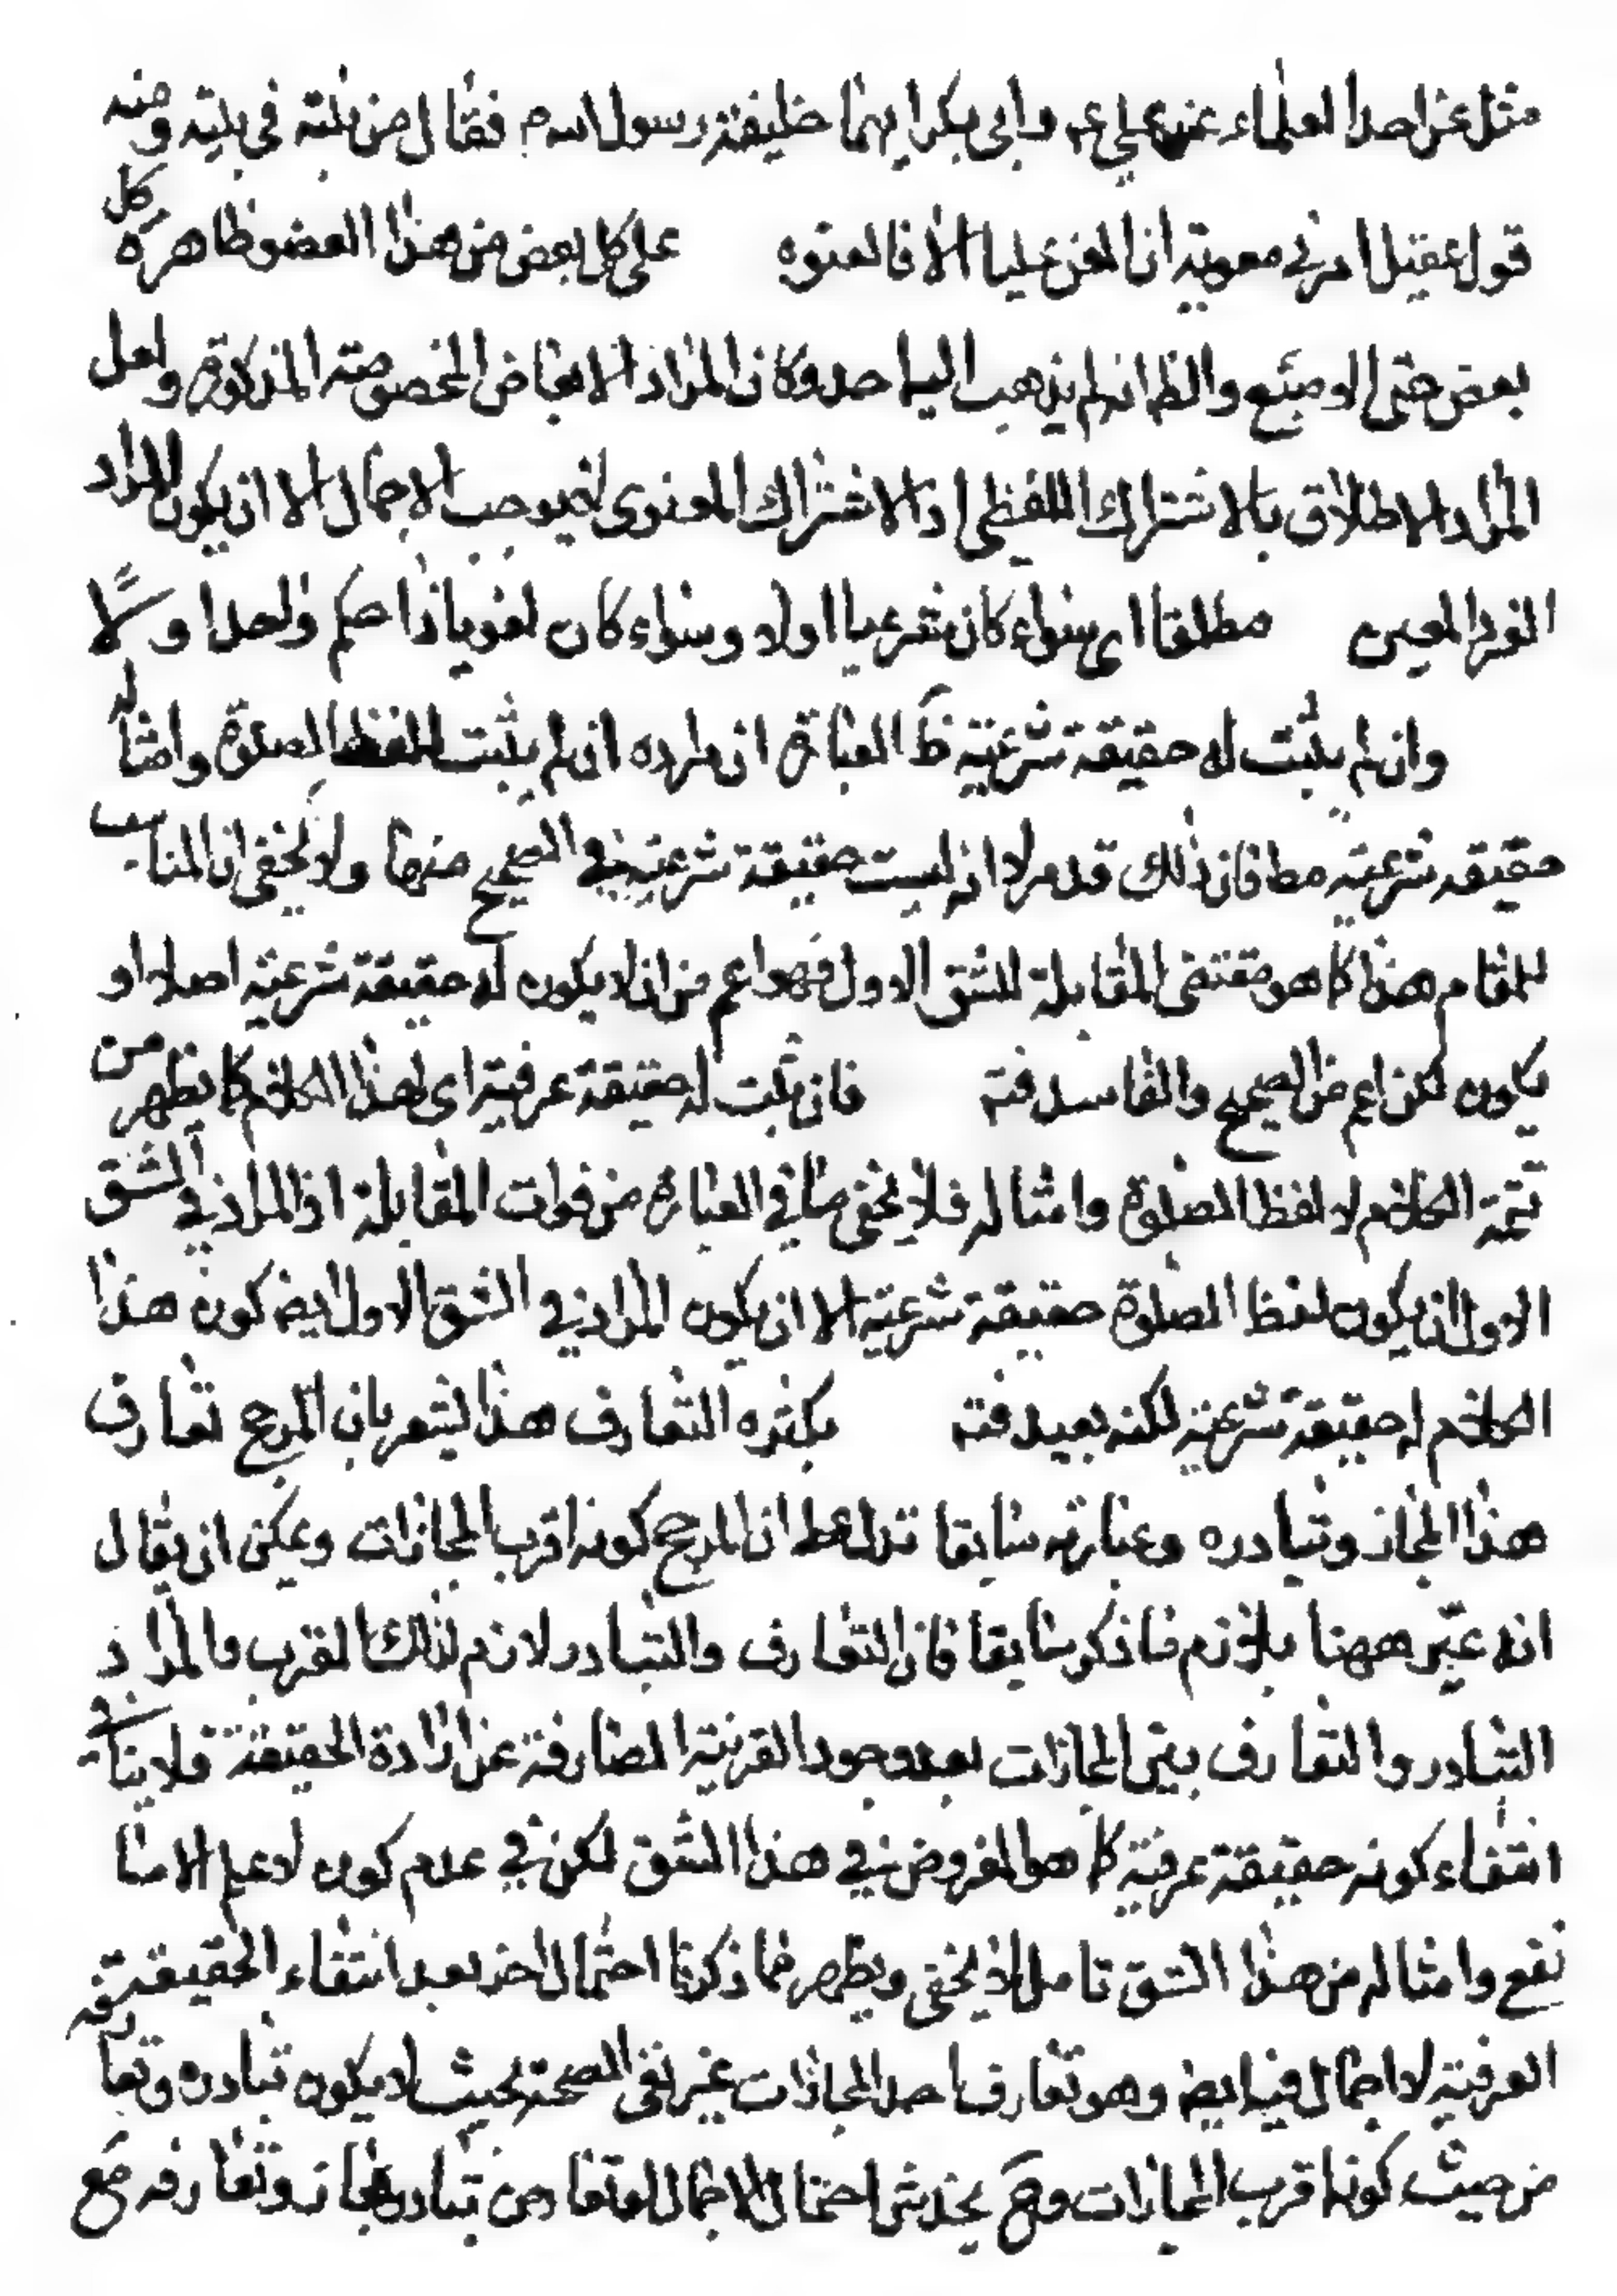 مثل عن احد العلماء عن علي ع م وابي بكر ايهما خليفة رسول الله م فقال من بنته في بيته ومنه
قول عقيل امرني معوية ان العن عليا الا فالعنوه على كل بعض من هذا العضو ظاهره كل
بعض حتى الاصبع والظ انه لم يذهب اليه احد وكان المراد الابعاض المخصوصة المذكورة ولعل
المراد الاطلاق بالاشتراك اللفظي اذ الاشتراك المعنوى لا يوجب الاجمال الا ان يكون المراد
الفرد المعين مطلقا اى سواء كان شرعيا اولا وسواء كان لغويا ذا حكم واحد اولا
وان لم يثبت له حقيقة شرعية ظ العبارة ان مراده ان لم يثبت للفظ الصلوة وامثاله
حقيقة شرعية مط فان ذلك قد مر لا انه ليست حقيقة شرعية في الصحيح منها ولا يخفى ان المناسب
للمقام هذا كما هو مقتضى المقابلة للشق الاول فهو اعم من ان لا يكون له حقيقة شرعية اصلا او
يكون لكن اعم من الصحيح والفاسد فته فان ثبت له حقيقة عرفية اى لهذا الكلام كما يظهر من
تتمة الكلام لا لفظ الصلوة وامثاله فلا يخفى ما في العبارة من فوات المقابلة اذ المراد في الشق
الاول ان يكون لفظ الصلوة حقيقة شرعية الا ان يكون المراد في الشق الاول ايض كون هذا
الكلام له حقيقة شرعية لكنه بعيد فته بكثرة التعارف هذا يشعر بان المرجح تعارف
هذا المجاز وتبادره وعبارته سابقا تدل على ان المرجح كونه اقرب المجازات ويمكن ان يقال
انه عبّر ههنا بلازم ما ذكر سابقا فان التعارف والتبادر لازم لذلك القرب والمراد
التبادر والتعارف بين المجازات بعد وجود القرينة الصارفة عن ارادة الحقيقة فلا ينافي
انتفاء كونه حقيقة عرفية كما هو المفروض في هذا الشق لكن في عدم كون لا علم الا ما
نفع وامثاله من هذا الشق تامل لا يخفى ويظهر مما ذكرنا احتمال اخر بعد انتفاء الحقيقة
العرفية لا اجمال فيه ايض وهو تعارف احد المجازات غير نفى الصحة بحيث لا يكون تبادره وتعارفه
من حيث كونه اقرب المجازات وح يخدش احتمال الاجمال لتبادر مجاز وتعارفه مع